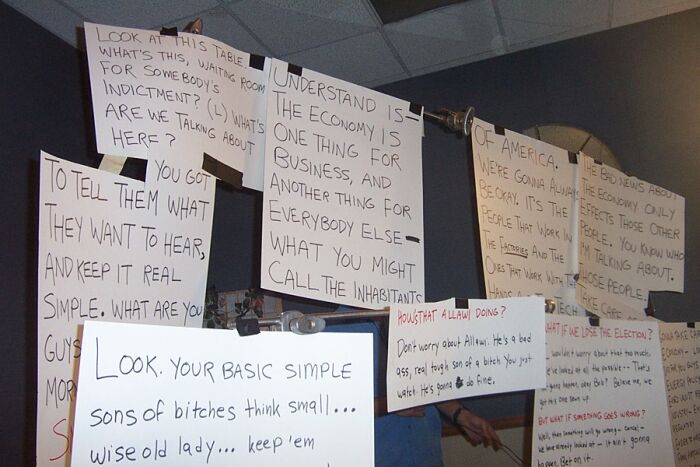 LOOK AT THIS TABLE.
WHAT'S THIS, WAITING ROOM
FOR SOMEBODY'S
INDICTMENT? (L) WHAT'S
ARE WE TALKING ABOUT
HERE?
YOU GOT
TO TELL THEM WHAT
THEY WANT TO HEAR,
AND KEEP IT REAL
SIMPLE. WHAT ARE YOU
GUYS
UNDERSTAND IS—
THE ECONOMY IS
ONE THING FOR
BUSINESS, AND
ANOTHER THING FOR
EVERYBODY ELSE—
WHAT YOU MIGHT
CALL THE INHABITANTS
OF AMERICA.
WE'RE GONNA ALWAY
BE OKAY. IT'S THE
PEOPLE THAT WORK IN
THE FACTORIES AND THE
ONES THAT WORK WITH T
HANDS
TECH
THE BAD NEWS ABOUT
THE ECONOMY ONLY
EFFECTS THOSE OTHER
PEOPLE. YOU KNOW WHO
I'M TALKING ABOUT.
THOSE PEOPLE.
TAKE CARE
LOOK. YOUR BASIC SIMPLE
sons of bitches think small...
wise old lady... keep 'em
HOW'S THAT ALLAWI DOING?
Don't worry about Allawi. He's a bad
ass, real tough son of a bitch. You just
watch. He's gonna do fine.
WHAT IF WE LOSE THE ELECTION?
I wouldn't worry about that too much.
We've looked at all the possible -- That's
gonna happen, okay Bob? Believe me, we
got this one sewn up.
BUT WHAT IF SOMETHING GOES WRONG?
Well, then something will go wrong - cancel -
we have already looked at - it ain't gonna
happen. Bet on it.